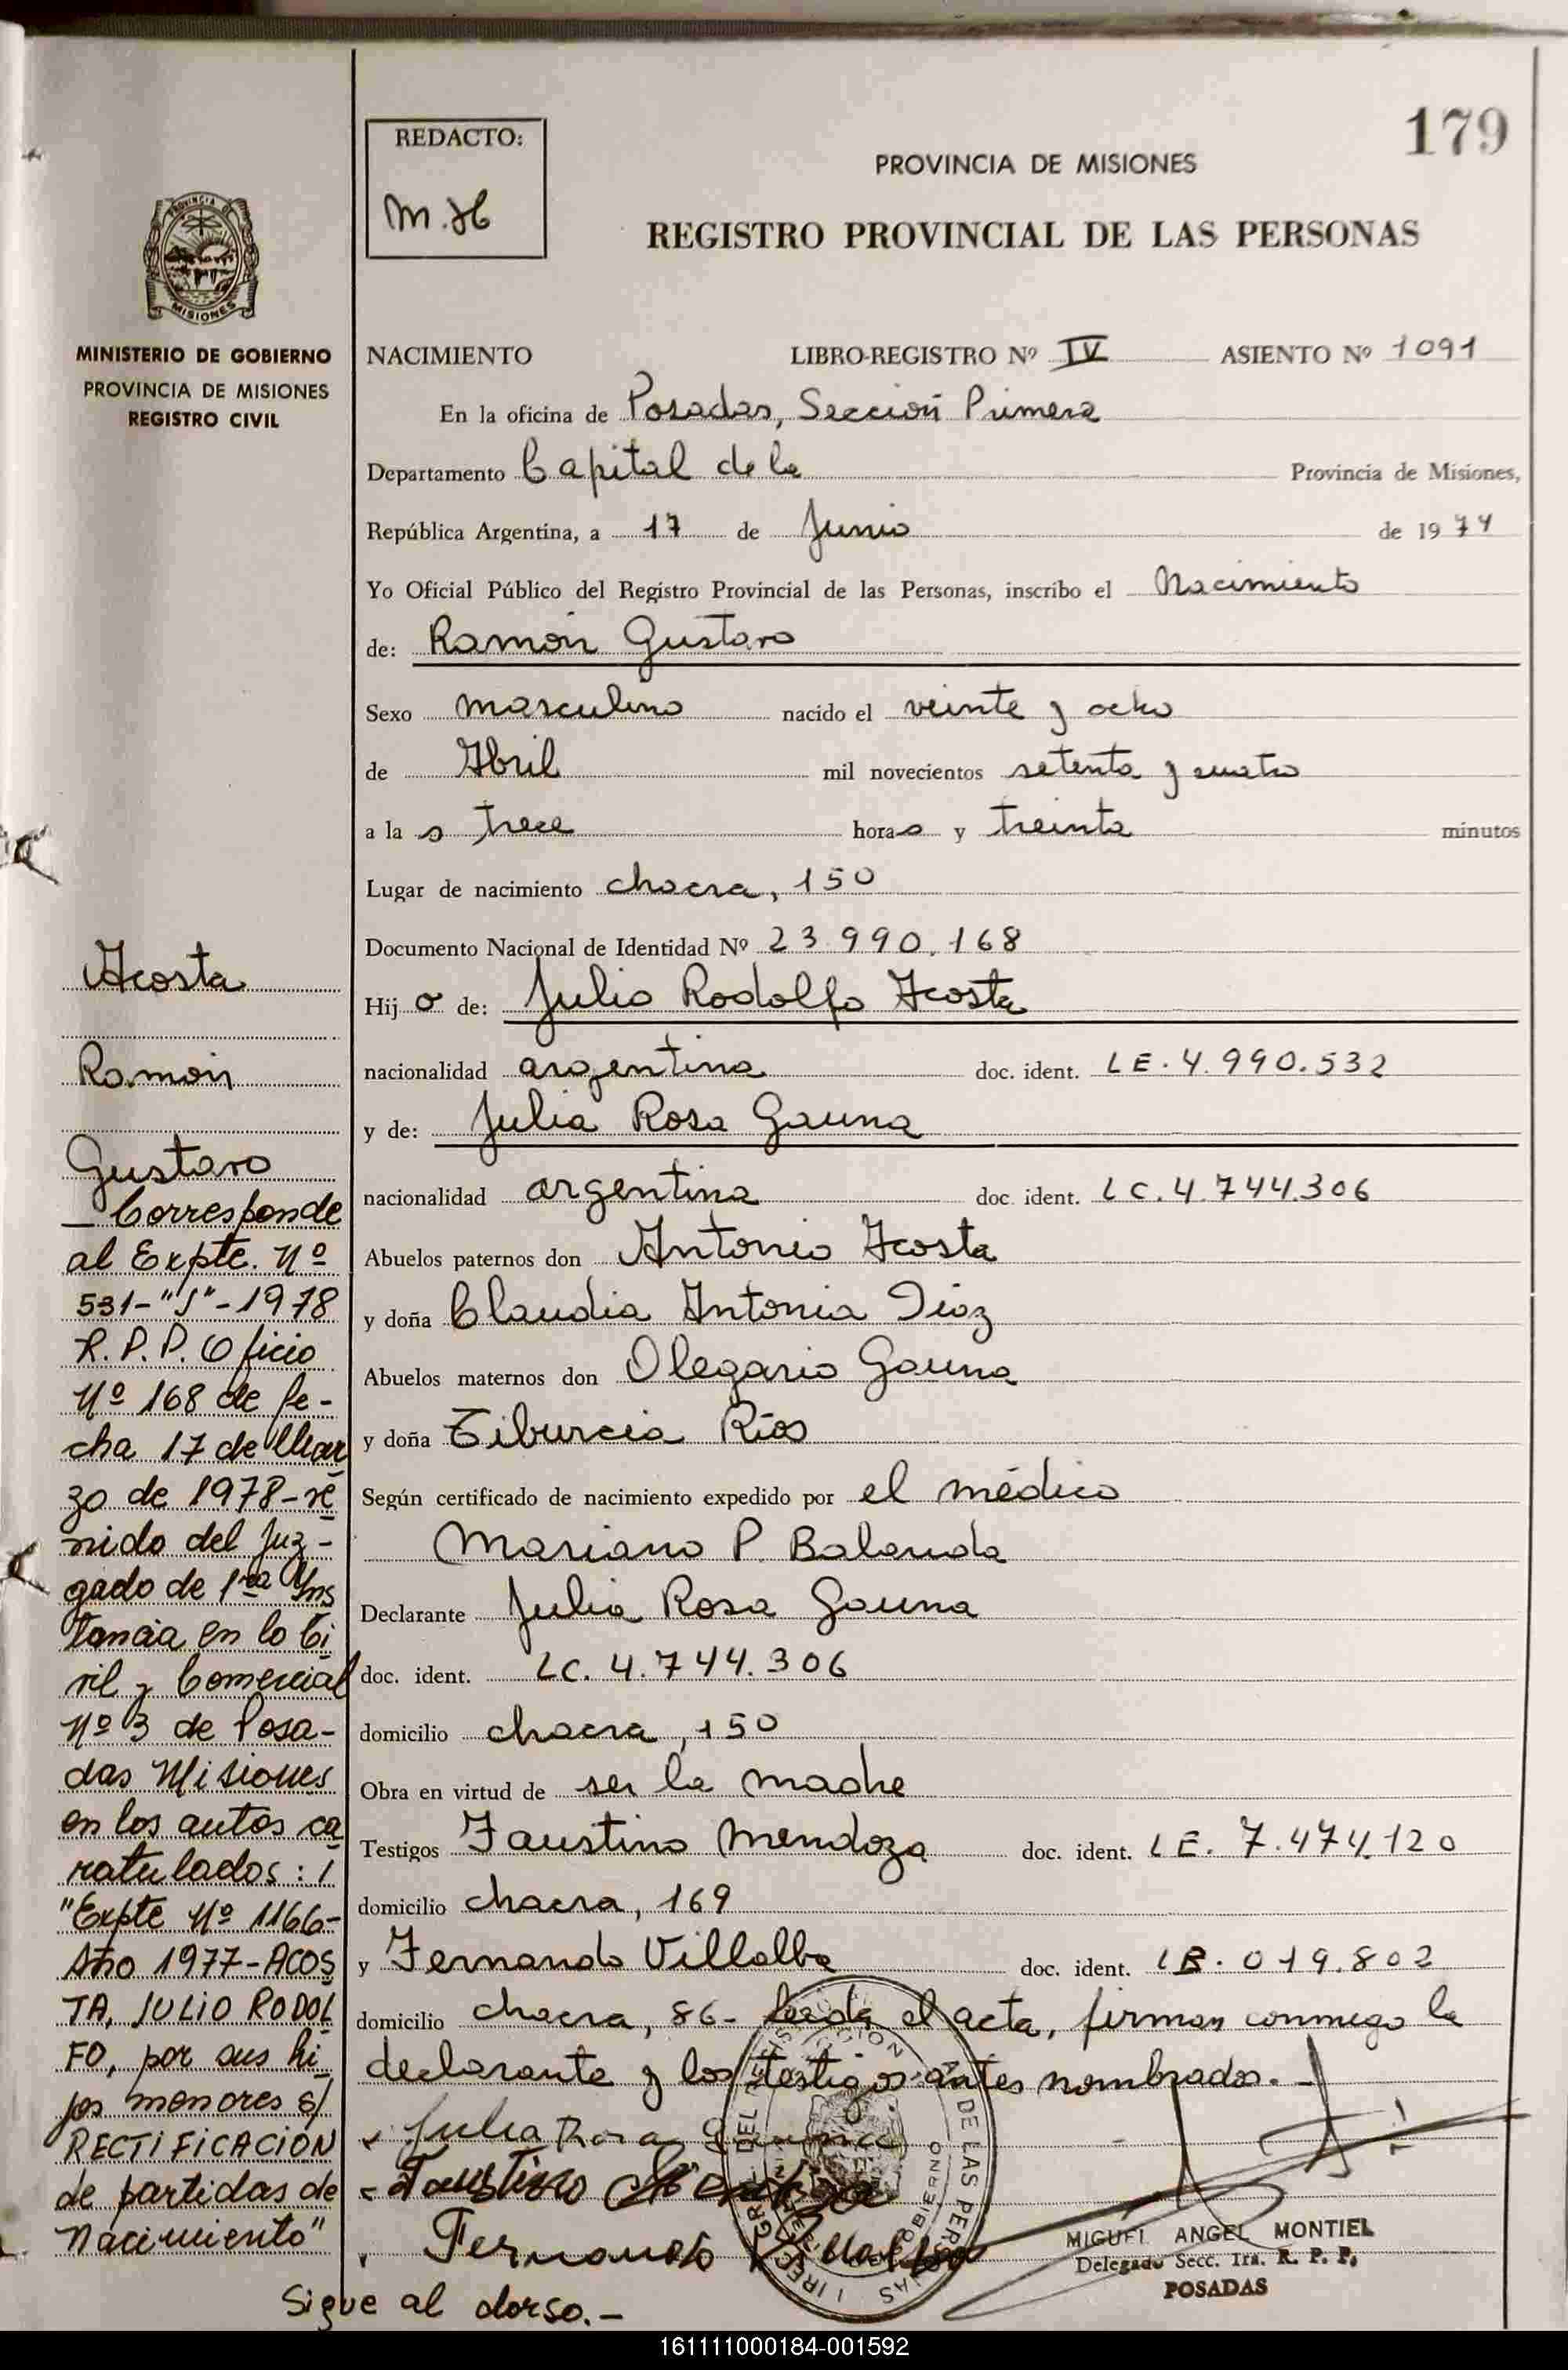 179
REDACTO:
M.H
PROVINCIA DE MISIONES
REGISTRO PROVINCIAL DE LAS PERSONAS
MISIONES
MINISTERIO DE GOBIERNO
PROVINCIA DE MISIONES
REGISTRO CIVIL
NACIMIENTO LIBRO-REGISTRO Nº IV ASIENTO Nº 1091
En la oficina de Posadas, Sección Primera
Departamento Capital de la Provincia de Misiones,
República Argentina, a 17 de Junio de 1974
Yo Oficial Público del Registro Provincial de las Personas, inscribo el Nacimiento
de: Ramón Gustavo
Sexo masculino nacido el veinte y ocho
de Abril mil novecientos setenta y cuatro
a las trece horas y treinta minutos
Lugar de nacimiento chacra, 150
Documento Nacional de Identidad Nº 23.990.168
Hijo de: Julio Rodolfo Acosta
nacionalidad argentina doc. ident. LE. 4.990.532
y de: Julia Rosa Gauna
nacionalidad argentina doc. ident. LC. 4.744.306
Abuelos paternos don Antonio Acosta
y doña Claudia Antonia Diaz
Abuelos maternos don Olegario Gauna
y doña Tiburcia Ríos
Según certificado de nacimiento expedido por el médico
Mariano P. Balanda
Declarante Julia Rosa Gauna
doc. ident. LC. 4.744.306
domicilio chacra, 150
Obra en virtud de ser la madre
Testigos Faustino Mendoza doc. ident. LE. 7.474.120
domicilio chacra, 169
y Fernando Villalba doc. ident. 019.802
domicilio chacra, 86- Leída el acta, firman conmigo la
declarante y los testigos antes nombrados.-
Julia Rosa Gauna
Faustino Mendoza
Fernando Villalba
MIGUEL ANGEL MONTIEL
Delegado Secc. 1ra. R. P. P.
POSADAS
Sigue al dorso.-
Acosta
Ramón
Gustavo
- Corresponde
al Expte. Nº
531-"J"-1978
R.P.P. Oficio
Nº 168 de fe-
cha 17 de Mar
zo de 1978-ve
nido del Juz-
gado de 1ra Ins
tancia en lo Ci
vil y Comercial
Nº 3 de Posa-
das Misiones
en los autos ca
ratulados: /
"Expte Nº 1166-
Año 1977-ACOS
TA, JULIO RODOL
FO, por sus hi
jos menores s/
RECTIFICACION
de partidas de
Nacimiento"
161111000184-001592